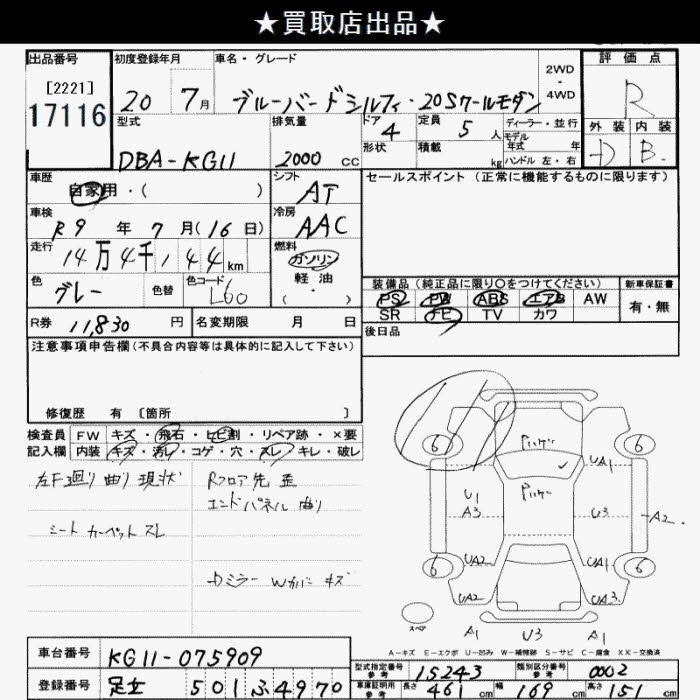 ★買取店出品★
出品番号 初度登録年月 車名・グレード 2WD - 4WD 評価点
[2221]
17116 20 7月 ブルーバードシルフィ・20Sクールモダン R
型式 排気量 ドア 4 定員 5人 ディーラー・並行 外装 内装
形状 積載 kg モデル年式 年 D B
DBA-KG11 2000cc ハンドル 左・右
車歴 シフト セールスポイント (正常に機能するものに限ります)
自家用・( ) AT
車検 冷房
R9年7月(16日) AAC
走行 燃料
14万4千,144km ガソリン
軽油
( ・ )
色 色替 色コード 装備品 (純正品に限り○をつけてください) 新車保証書
グレー L60 PS PW ABS エアB AW 有・無
SR FE TV カワ
R券 11,830円 名変期限 月 日 後日品
注意事項申告欄 (不具合内容等は具体的に記入して下さい)
修復歴 有 〔箇所 〕
検査員 FW キズ・飛石・ヒビ割・リペア跡・×要
記入欄 内装 キズ・汚レ・コゲ・穴・スレ・キレ・破レ
左F廻り曲り現状 Rフロア先歪
エンドパネル曲り
シートカーペットスレ
Wカバーキズ
6 6
UA1
U1
A3 U3 A2
UA2 UA1
6 6
UA2 UA3
スペア A1 U3 A1
A-キズ E-エクボ U-凹み W-補修跡 S-サビ C-腐食 XX-交換済
車台番号 KG11-075909 型式指定番号 参考 15243 類別区分番号 参考 0002
登録番号 足立 501 ふ 4970 車庫証明用 参考 長さ 461cm 幅 169cm 高さ 151cm